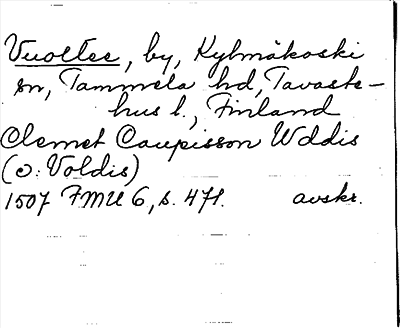 Vuoltee, by, Kylmäkoski
sn, Tammela hd, Tavaste-
hus l., Finland
Clemet Caupisson Wddis
(ɔ: Voldis)
1507 FMU 6, s. 471. avskr.